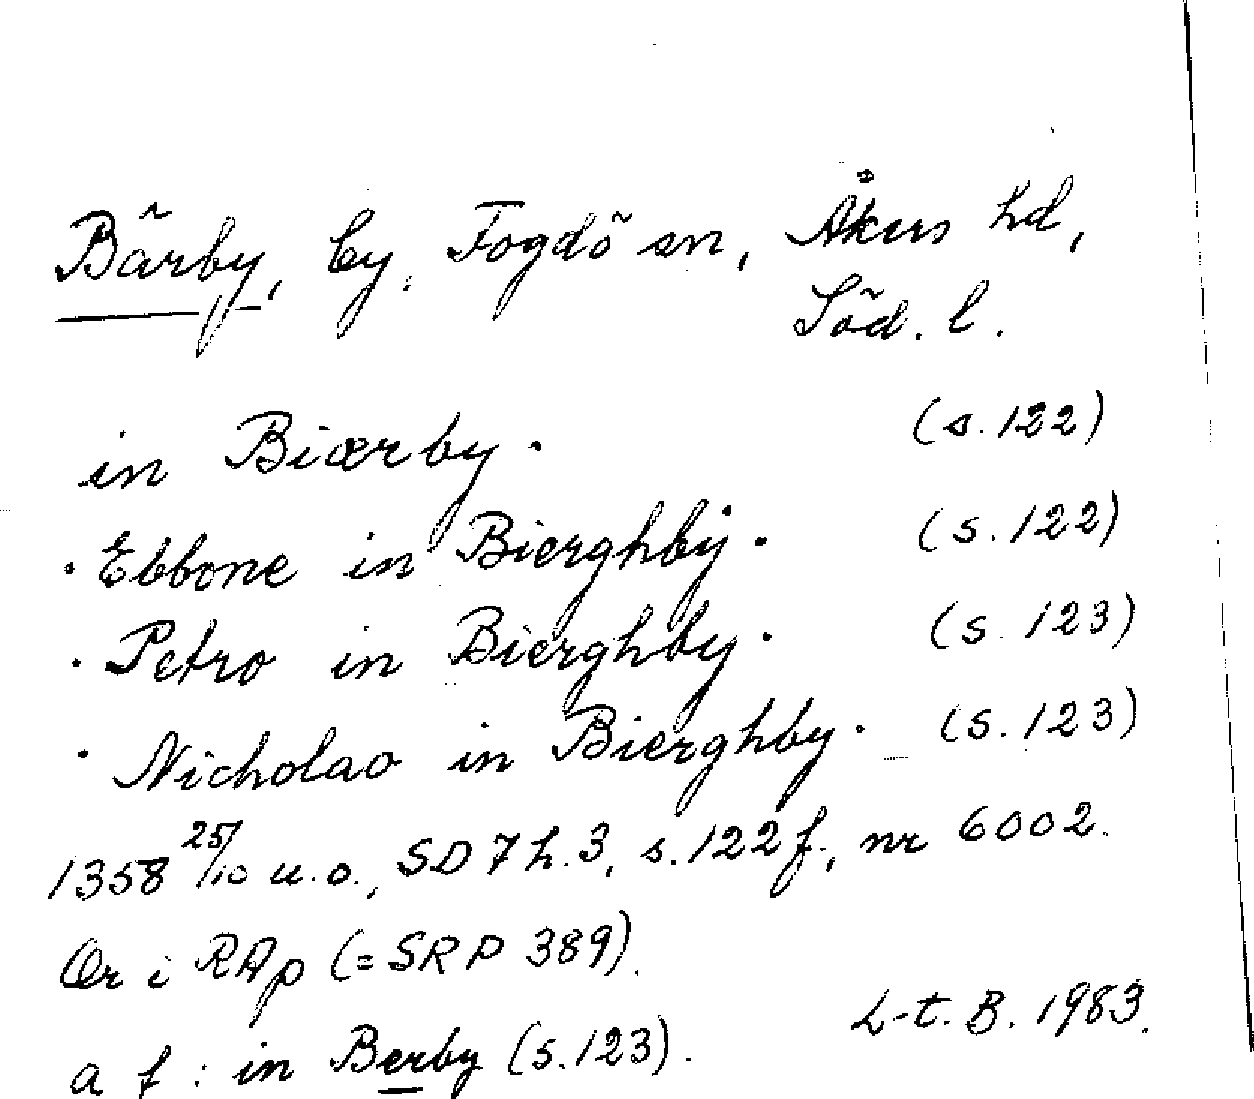 Bärby, by, Fogdö sn, Åkers hd,
Söd. l.
in Biærby. (s. 122)
· Ebbone in Bierghby. (s. 122)
· Petro in Bierghby. (s. 123)
· Nicholao in Bierghby. (s. 123)
1358 25/10 u.o., SD 7 h. 3, s. 122 f., nr 6002.
Or i RAp (= SRP 389).
a f : in Berby (s. 123).
L-t. B. 1983.